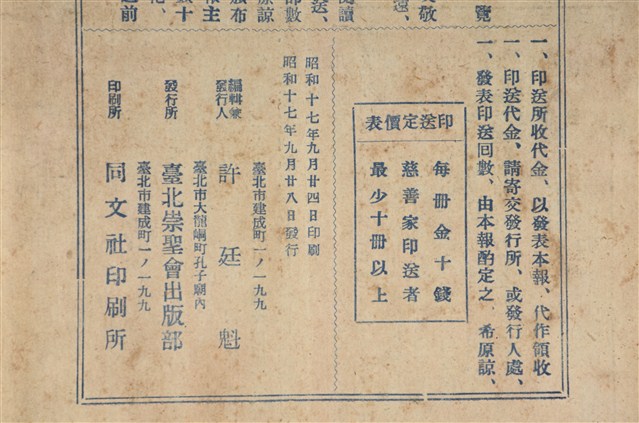 覽
敬
閱讀
送、
部數
原諒
布
主
十
前
一、印送所收代金、以發表本報、代作領收
一、印送代金、請寄交發行所、或發行人處、
一、發表印送回數、由本報酌定之、希原諒、
印送定價表
每冊金十錢
慈善家印送者
最少十冊以上
昭和十七年九月廿四日印刷
昭和十七年九月廿八日發行
臺北市建成町一ノ一九九
編輯兼發行人 許廷魁
臺北市大龍峒町孔子廟內
發行所 臺北崇聖會出版部
臺北市建成町一ノ一九九
印刷所 同文社印刷所